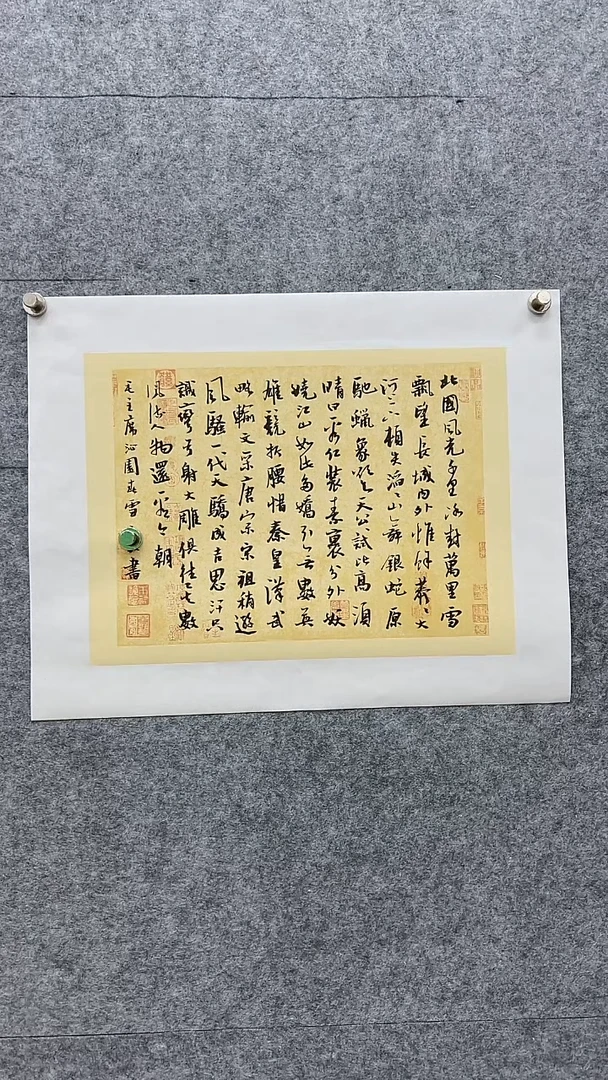 北國風光千里冰封萬里雪
飄望長城內外惟餘莽〻大
河上下頓失滔〻山舞銀蛇原
馳蠟象欲與天公試比高須
晴日看紅裝素裹分外妖
嬈江山如此多嬌引無數英
雄競折腰惜秦皇漢武
略輸文采唐宗宋祖稍遜
風騷一代天驕成吉思汗只
識彎弓射大雕俱往矣數
風流人物還看今朝
毛主席沁園春雪 書